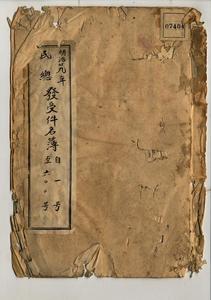 明治廿九年
民總發受件名簿
自一号
至六〇〇号
07404